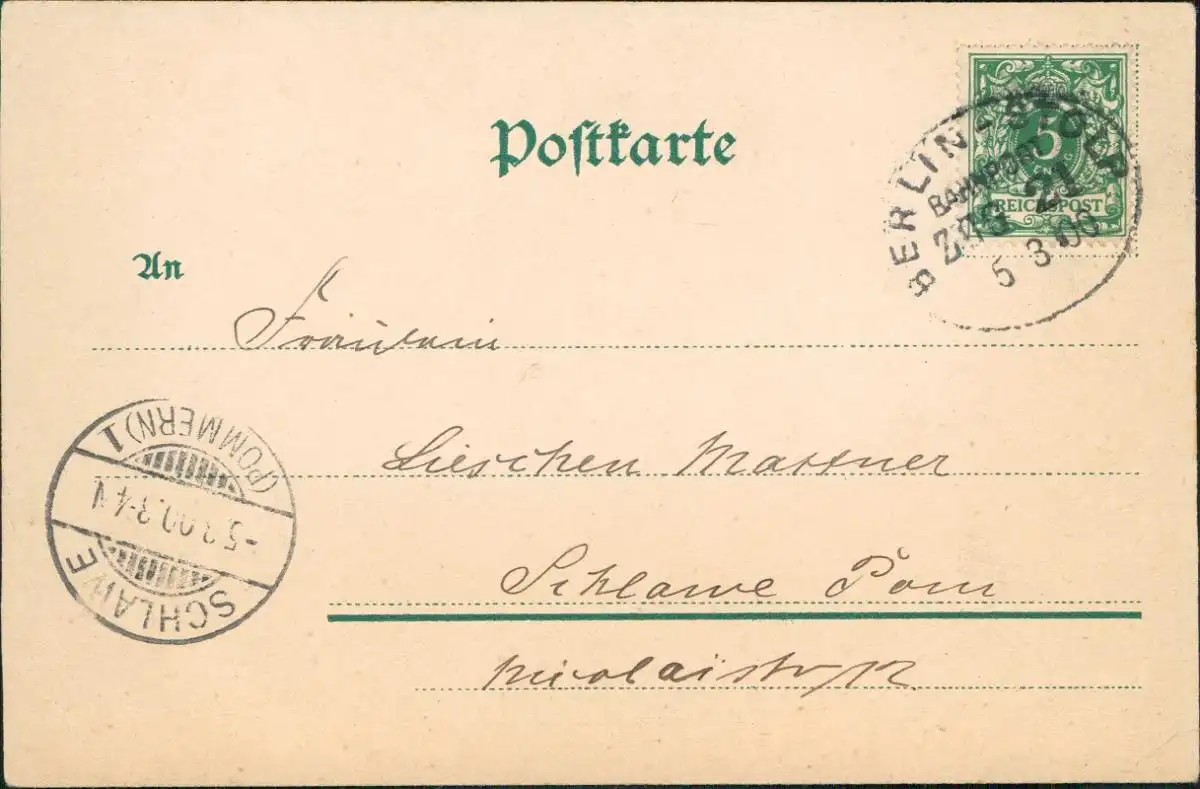 Postkarte
5
REICHSPOST
BERLIN - STOLP
BAHNPOST
ZUG 21
5 3 00
An
Fräulein
Lieschen Massner
Schlawe Pom
Nicolaistr 12
SCHLAWE
-5.3.00.3-4 N
(POMMERN) 1